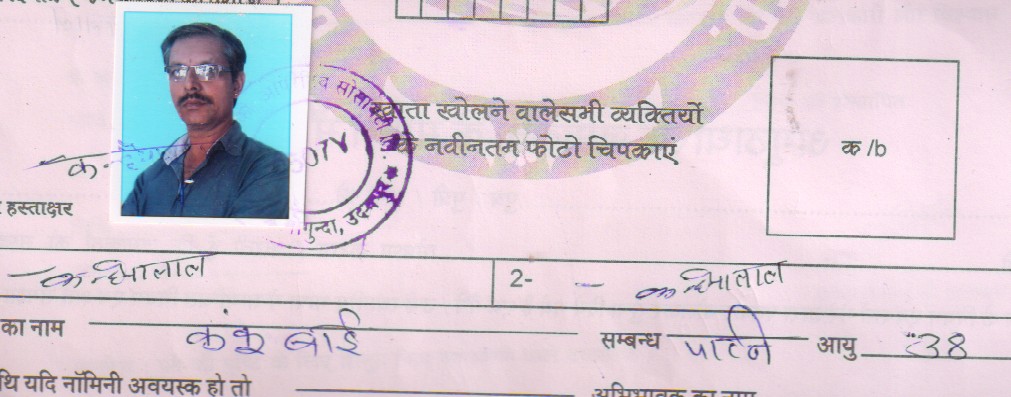 खाता खोलने वाले सभी व्यक्तियों
के नवीनतम फोटो चिपकाएं
क /b
हस्ताक्षर
कन्हैयालाल 2- कन्हैयालाल
का नाम कंकू बाई सम्बन्ध पत्नि आयु 38
थि यदि नॉमिनी अवयस्क हो तो